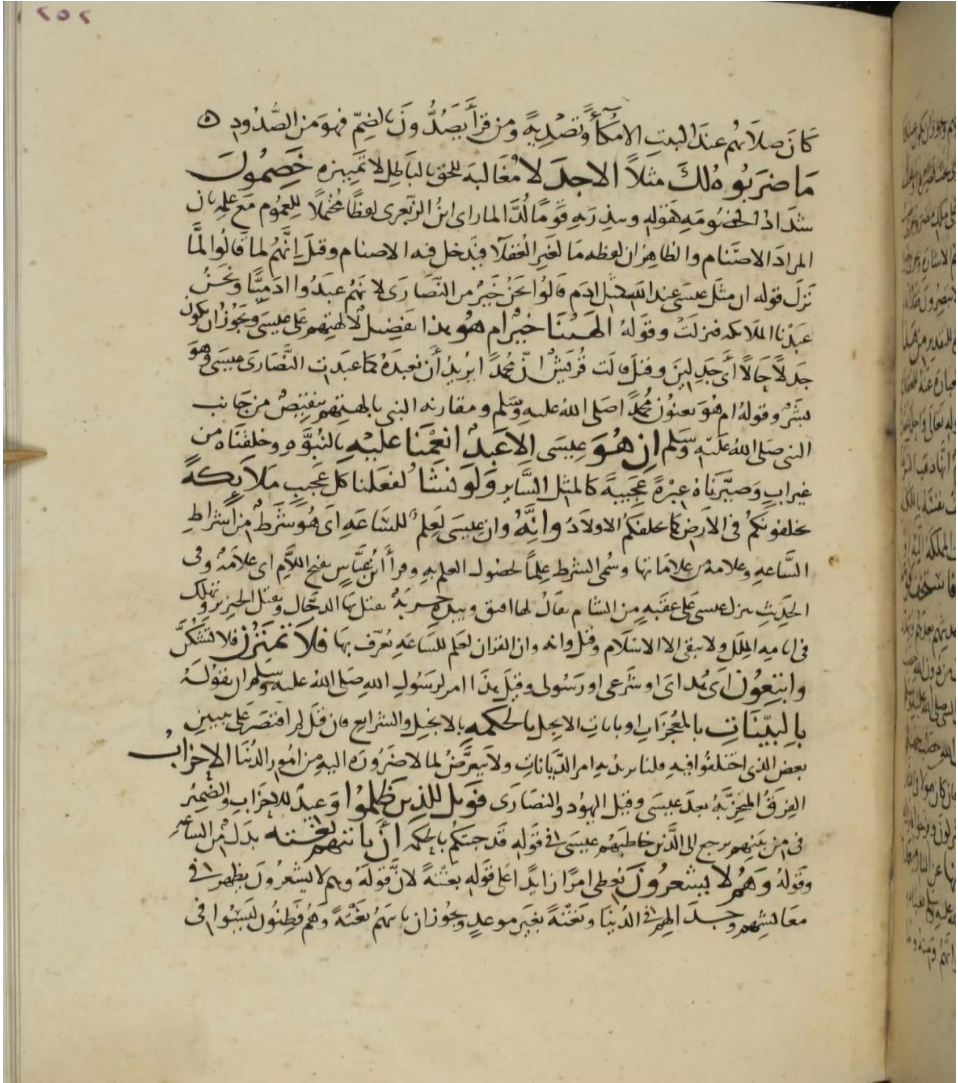 ٢٥٢
كان صلاتهم عند البيت الا مكآء وتصدية ومن قرأ يصدُّون بالضمّ فهو من الصُّدُود ه
ما ضربوه لك مثلاً الا جدلا مغالبة للحق بالباطل لا تمييزه خصمون
شداد الخصومه كقوله وينذر به قومًا لُدًّا لما راى ابن الزبعرى لفظًا محتملًا للعموم مع علمه بان
المراد الاصنام والظاهر ان لفظه ما لغير العقلا فيدخل فيه الاصنام وقيل إنَّهم لما قالوا لمَّا
نزل قوله ان مثل عيسى عند الله كمثل ادم قالوا نحن خير من النَّصارى لانهم عبدوا ادميًّا ونحن
عبدنا الملائكه فنزلت وقوله الهتنا خير ام هو بهذا تفضيل لالهتهم على عيسى ويجوز ان يكون
جدلًا حالًا أى جدلين وقيل قالت قريش انّ محمدًا يريد أن نعبده كما عبدت النَّصارى عيسى وهو
بشر وقوله ام هو يعنون محمدًا صلى الله عليه وسلم ومقارنه النبى بالهتهم من جانب
النبى صلى الله عليه وسلم ان هو عيسى الا عبد انعمنا عليه بالنبُوّه وخلقناه من
غير اب وصيّرناه عبرةً عجيبةً كالمثل السَّاير ولو نشا لفعلنا كل عجيب ملائكة
يخلفونكم فى الارض كما يخلفكم الاولاد وانه وان عيسى لعلم للساعه اى هو شرط من أشراط
السَّاعه وعلامه من علاماتها وسُمى الشرط علمًا لحصول العلم به وقرأ ابن عبَّاس بفتح اللَّام اى علامه وفى
الحديث ينزل عيسى على عقبه من الشام يقال لها افيق وبيده حربة يقتل بها الدجّال ويقتل الخنزير وتهلك
فى ايامه الملل ولا يبقى الا الاسلام وقيل وانه وان القران لعلم للساعه تعرف بها فلا تمترن فلا تشكّنَّ
واتبعون اى هداى او شرعى او رسولى وقيل هذا امر لرسول الله صلى الله عليه وسلم ان يقوله
بالبينات بالمعجزات او بايات الانجيل بالحكمه بالانجيل والشرايع فان قيل لم اقتصر على تبيين
بعض الذى اختلفوا فيه قلنا يريد به امر الدّيانات ولا يتعرَّض لما لا ضروره اليه من امور الدُّنيا الاحزاب
الفرق المتحزّبة بعد عيسى وقيل اليهود والنصارى فويل للذين ظلموا وعيد للاحزاب والضمير
فى من بينهم يرجع الى الذين خاطبهم عيسى فى قوله قد جئتكم بالحكمه ان تاتيهم بغتة بدل من الساعه
وقوله وهم لا يشعرون يعطى امرًا زايدًا على قوله بغتةً لانَّ قوله وهم لا يشعرون يظهر فى
معايشهم وجدالهم فى الدنيا وبغتةً بغير موعد ويجوز ان ياتيهم بغتةً وهم فطنون ليسوا فى